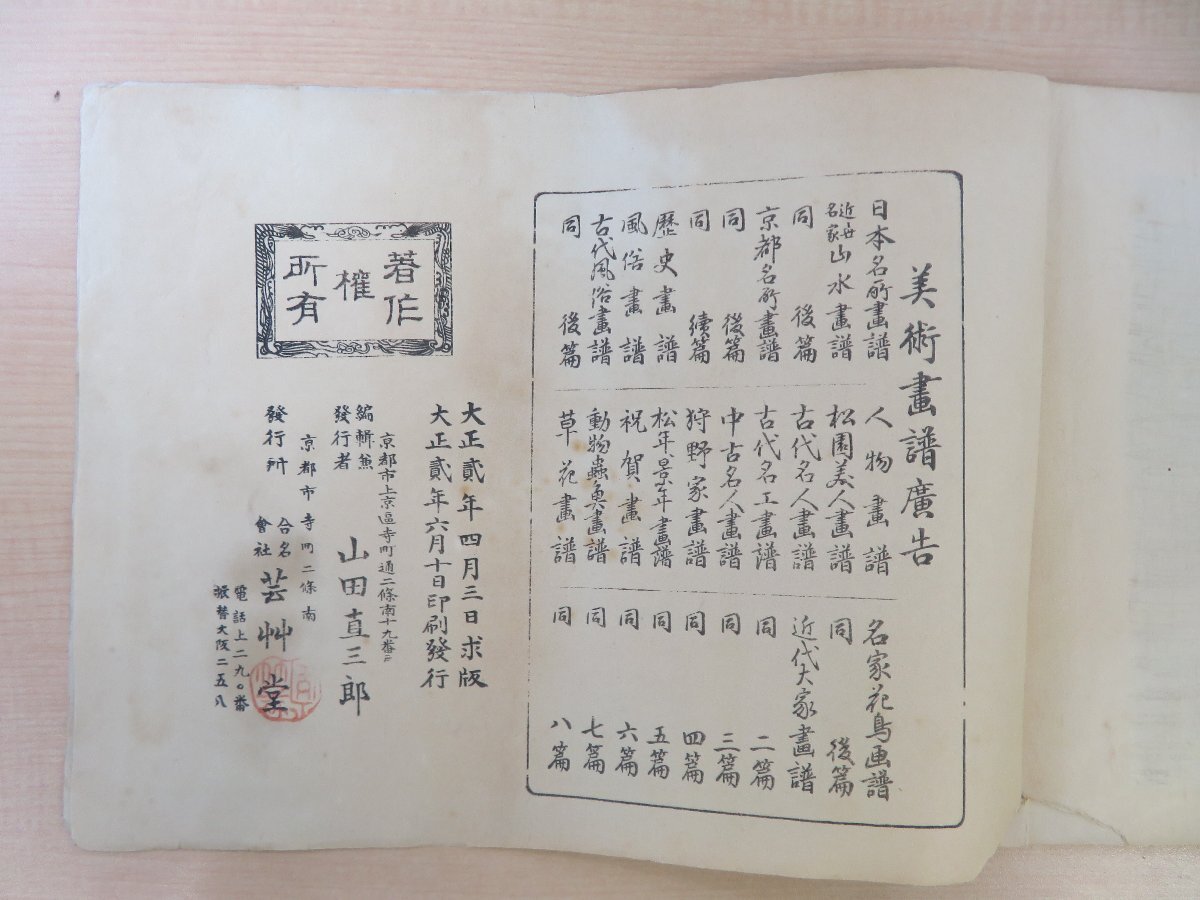 美術畫譜廣告
日本名所畫譜
近世名家山水畫譜
同 後篇
京都名所畫譜
同 後篇
同 續篇
歷史畫譜
風俗畫譜
古代風俗畫譜
同 後篇
人物畫譜
松園美人畫譜
古代名人畫譜
古代名工畫譜
中古名人畫譜
狩野家畫譜
松年景年畫譜
祝賀畫譜
動物蟲魚畫譜
草花畫譜
名家花鳥画譜
同 後篇
近代大家畫譜
同 二篇
同 三篇
同 四篇
同 五篇
同 六篇
同 七篇
同 八篇
大正貳年四月三日求版
大正貳年六月十日印刷發行
京都市上京區寺町通二條南十九番戶
編輯兼發行者 山田直三郎
京都市寺町二條南
發行所 合名會社 芸艸堂
電話上二九〇番
振替大阪二五八
著作
權
所有